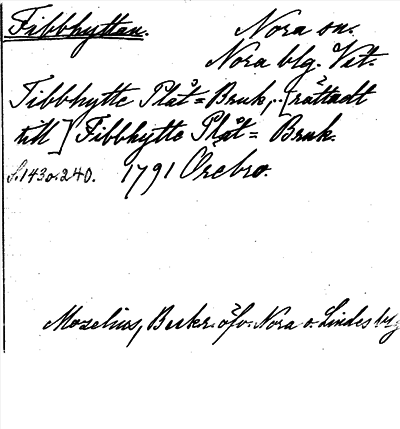 Fibbhyttan.
Nora sn.
Nora blg. Vst.
Tibbhytte Plåt=Bruk, [rättadt
till] Fibbhytte Plåt= Bruk.
s. 143 o. 240. 1791 Örebro.
Mozelius, Beskr. öfv. Nora o. Lindesberg